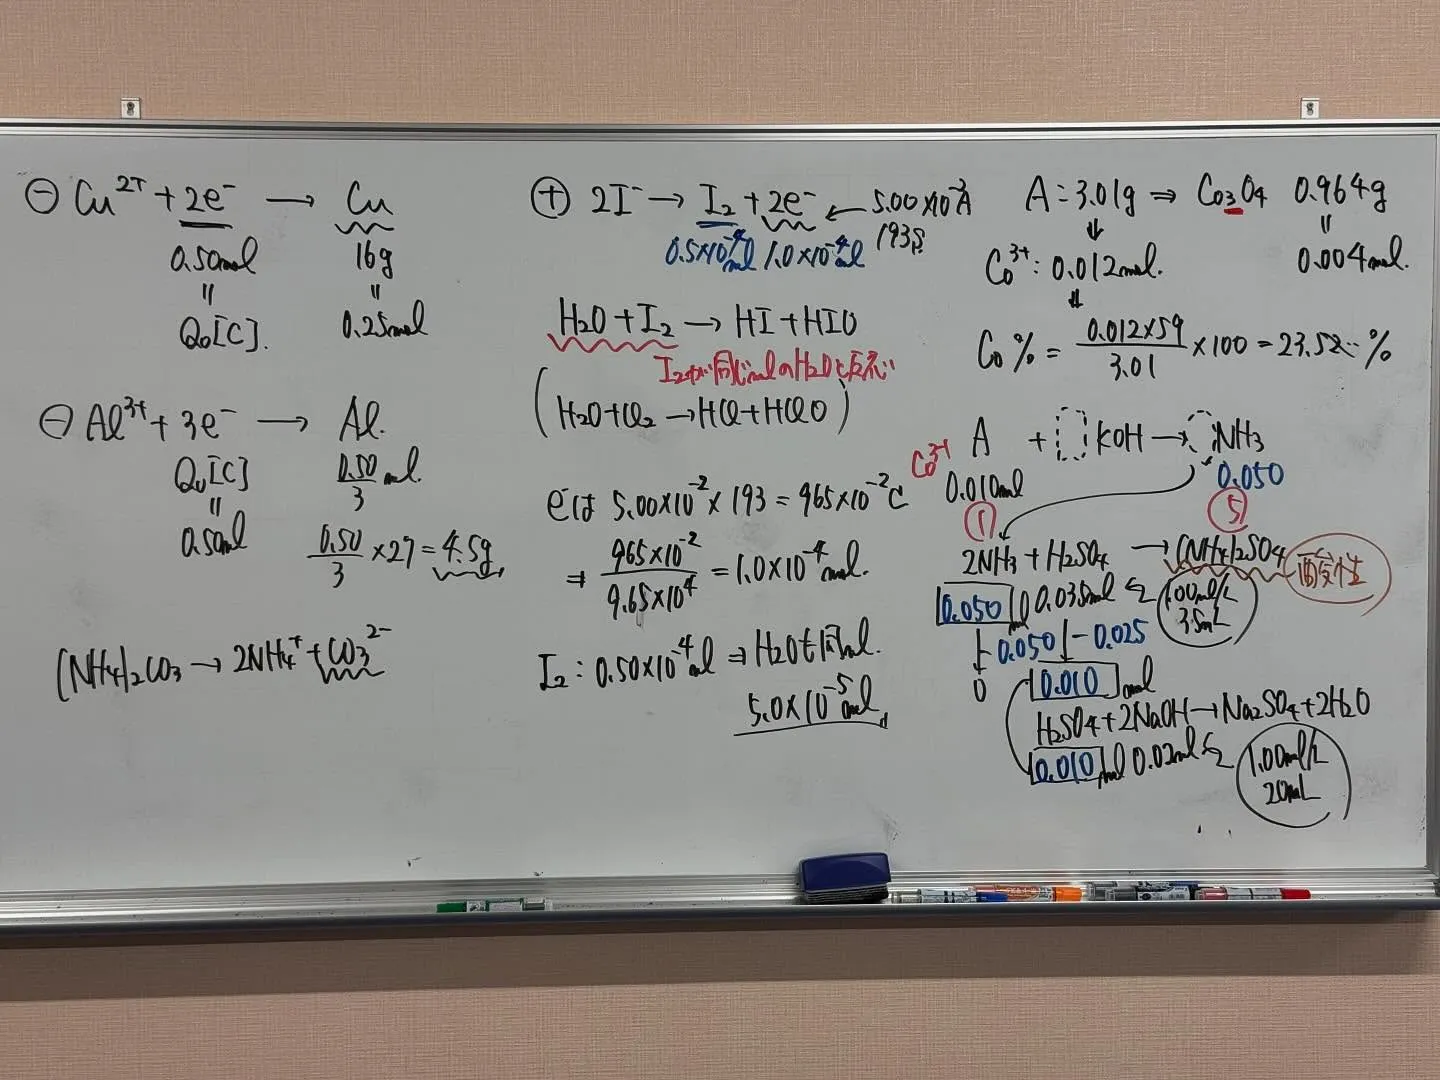 ⊖ Cu²⁺ + 2e⁻ → Cu
0.50mol 16g
= =
Q₀[C]. 0.25mol
⊖ Al³⁺ + 3e⁻ → Al.
Q₀[C] 0.50/3 mol.
=
0.50mol 0.50/3 × 27 = 4.5g
(NH₄)₂CO₃ → 2NH₄⁺ + CO₃²⁻
⊕ 2I⁻ → I₂ + 2e⁻ ← 5.00×10⁻²A
193s
0.5×10⁻⁴mol 1.0×10⁻⁴mol
H₂O + I₂ → HI + HIO
I₂が同じmolのH₂Oと反応
(H₂O + Cl₂ → HCl + HClO)
e⁻は 5.00×10⁻² × 193 = 965×10⁻² C
⇒ 965×10⁻²/9.65×10⁴ = 1.0×10⁻⁴ mol.
I₂ : 0.50×10⁻⁴mol ⇒ H₂Oも同mol.
5.0×10⁻⁵mol
A : 3.01g ⇒ Co₃O₄ 0.964g
↓ =
Co³⁺ : 0.012mol. 0.004mol.
↓
Co % = 0.012×59/3.01 × 100 = 23.52… %
Co³⁺ A + KOH → NH₃
0.010mol 0.050
① ⑤
2NH₃ + H₂SO₄ → (NH₄)₂SO₄ 酸性
0.050mol 0.035mol ⇐ 1.00mol/L
35mL
↓ -0.050 ↓ -0.025
0 0.010 mol
H₂SO₄ + 2NaOH → Na₂SO₄ + 2H₂O
0.010 mol 0.02mol ⇐ 1.00mol/L
20mL